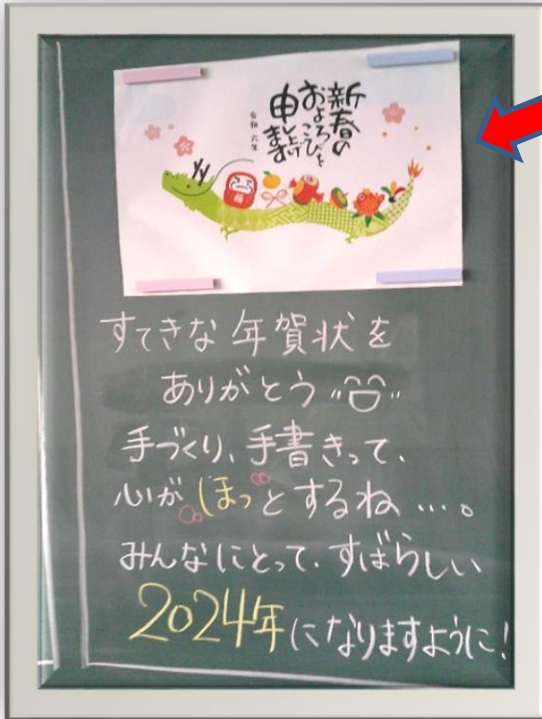 新春の
およろこびを
申し上げ
ます
令和 六年
すてきな 年賀状を
ありがとう
手づくり、手書きって、
心が ほっとするね…。
みんなにとって、すばらしい
2024年になりますように!